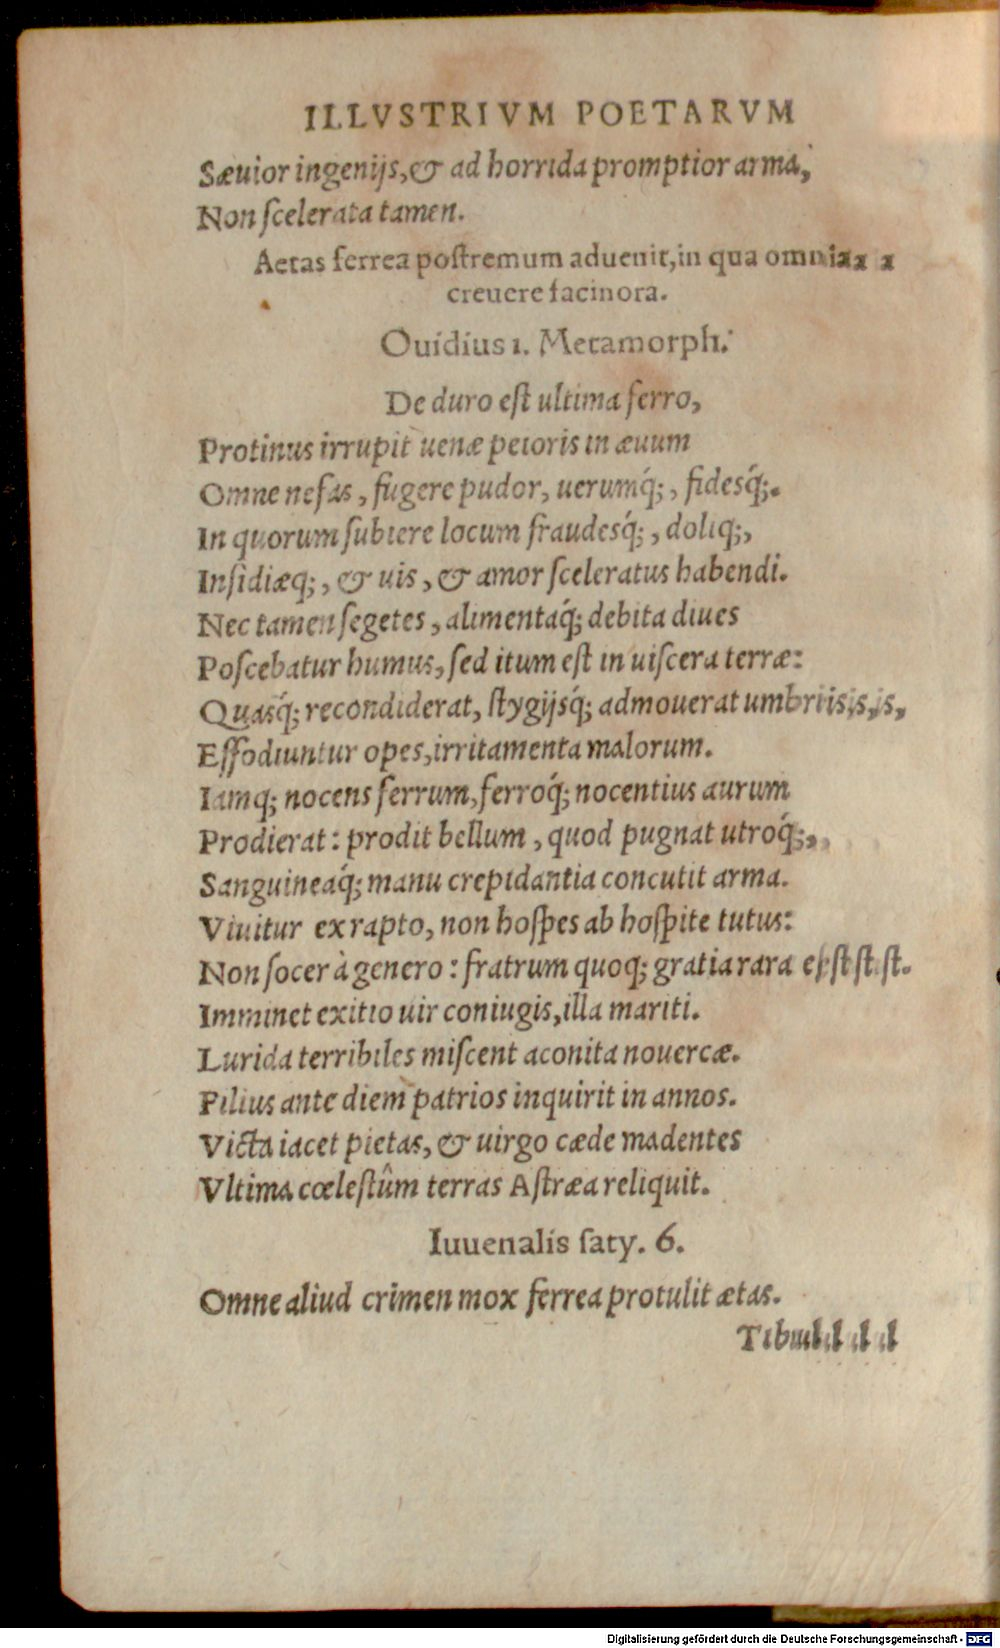 ILLVSTRIVM POETARVM
Sæuior ingenijs, & ad horrida promptior arma,
Non ſcelerata tamen.
Aetas ferrea poſtremum aduenit, in qua omnia
creuere facinora.
Ouidius 1. Metamorph.
De duro eſt ultima ferro,
Protinus irrupit uenæ peioris in æuum
Omne nefas, fugere pudor, uerumq́;, fidesq́;.
In quorum ſubiere locum fraudesq́;, doliq;,
Inſidiæq;, & uis, & amor ſceleratus habendi.
Nec tamen ſegetes, alimentaq́; debita diues
Poſcebatur humus, ſed itum eſt in uiſcera terræ:
Quasq́; recondiderat, ſtygijsq́; admouerat umbris,
Effodiuntur opes, irritamenta malorum.
Iamq; nocens ferrum, ferroq́; nocentius aurum
Prodierat: prodit bellum, quod pugnat utroq́;,
Sanguineaq́; manu crepidantia concutit arma.
Viuitur ex rapto, non hoſpes ab hoſpite tutus:
Non ſocer à genero: fratrum quoq; gratia rara eſt.
Imminet exitio uir coniugis, illa mariti.
Lurida terribiles miſcent aconita nouercæ.
Filius ante diem patrios inquirit in annos.
Victa iacet pietas, & uirgo cæde madentes
Vltima cœleſtûm terras Aſtræa reliquit.
Iuuenalis ſaty. 6.
Omne aliud crimen mox ferrea protulit ætas.
Tibul
Digitalisierung gefördert durch die Deutsche Forschungsgemeinschaft - DFG